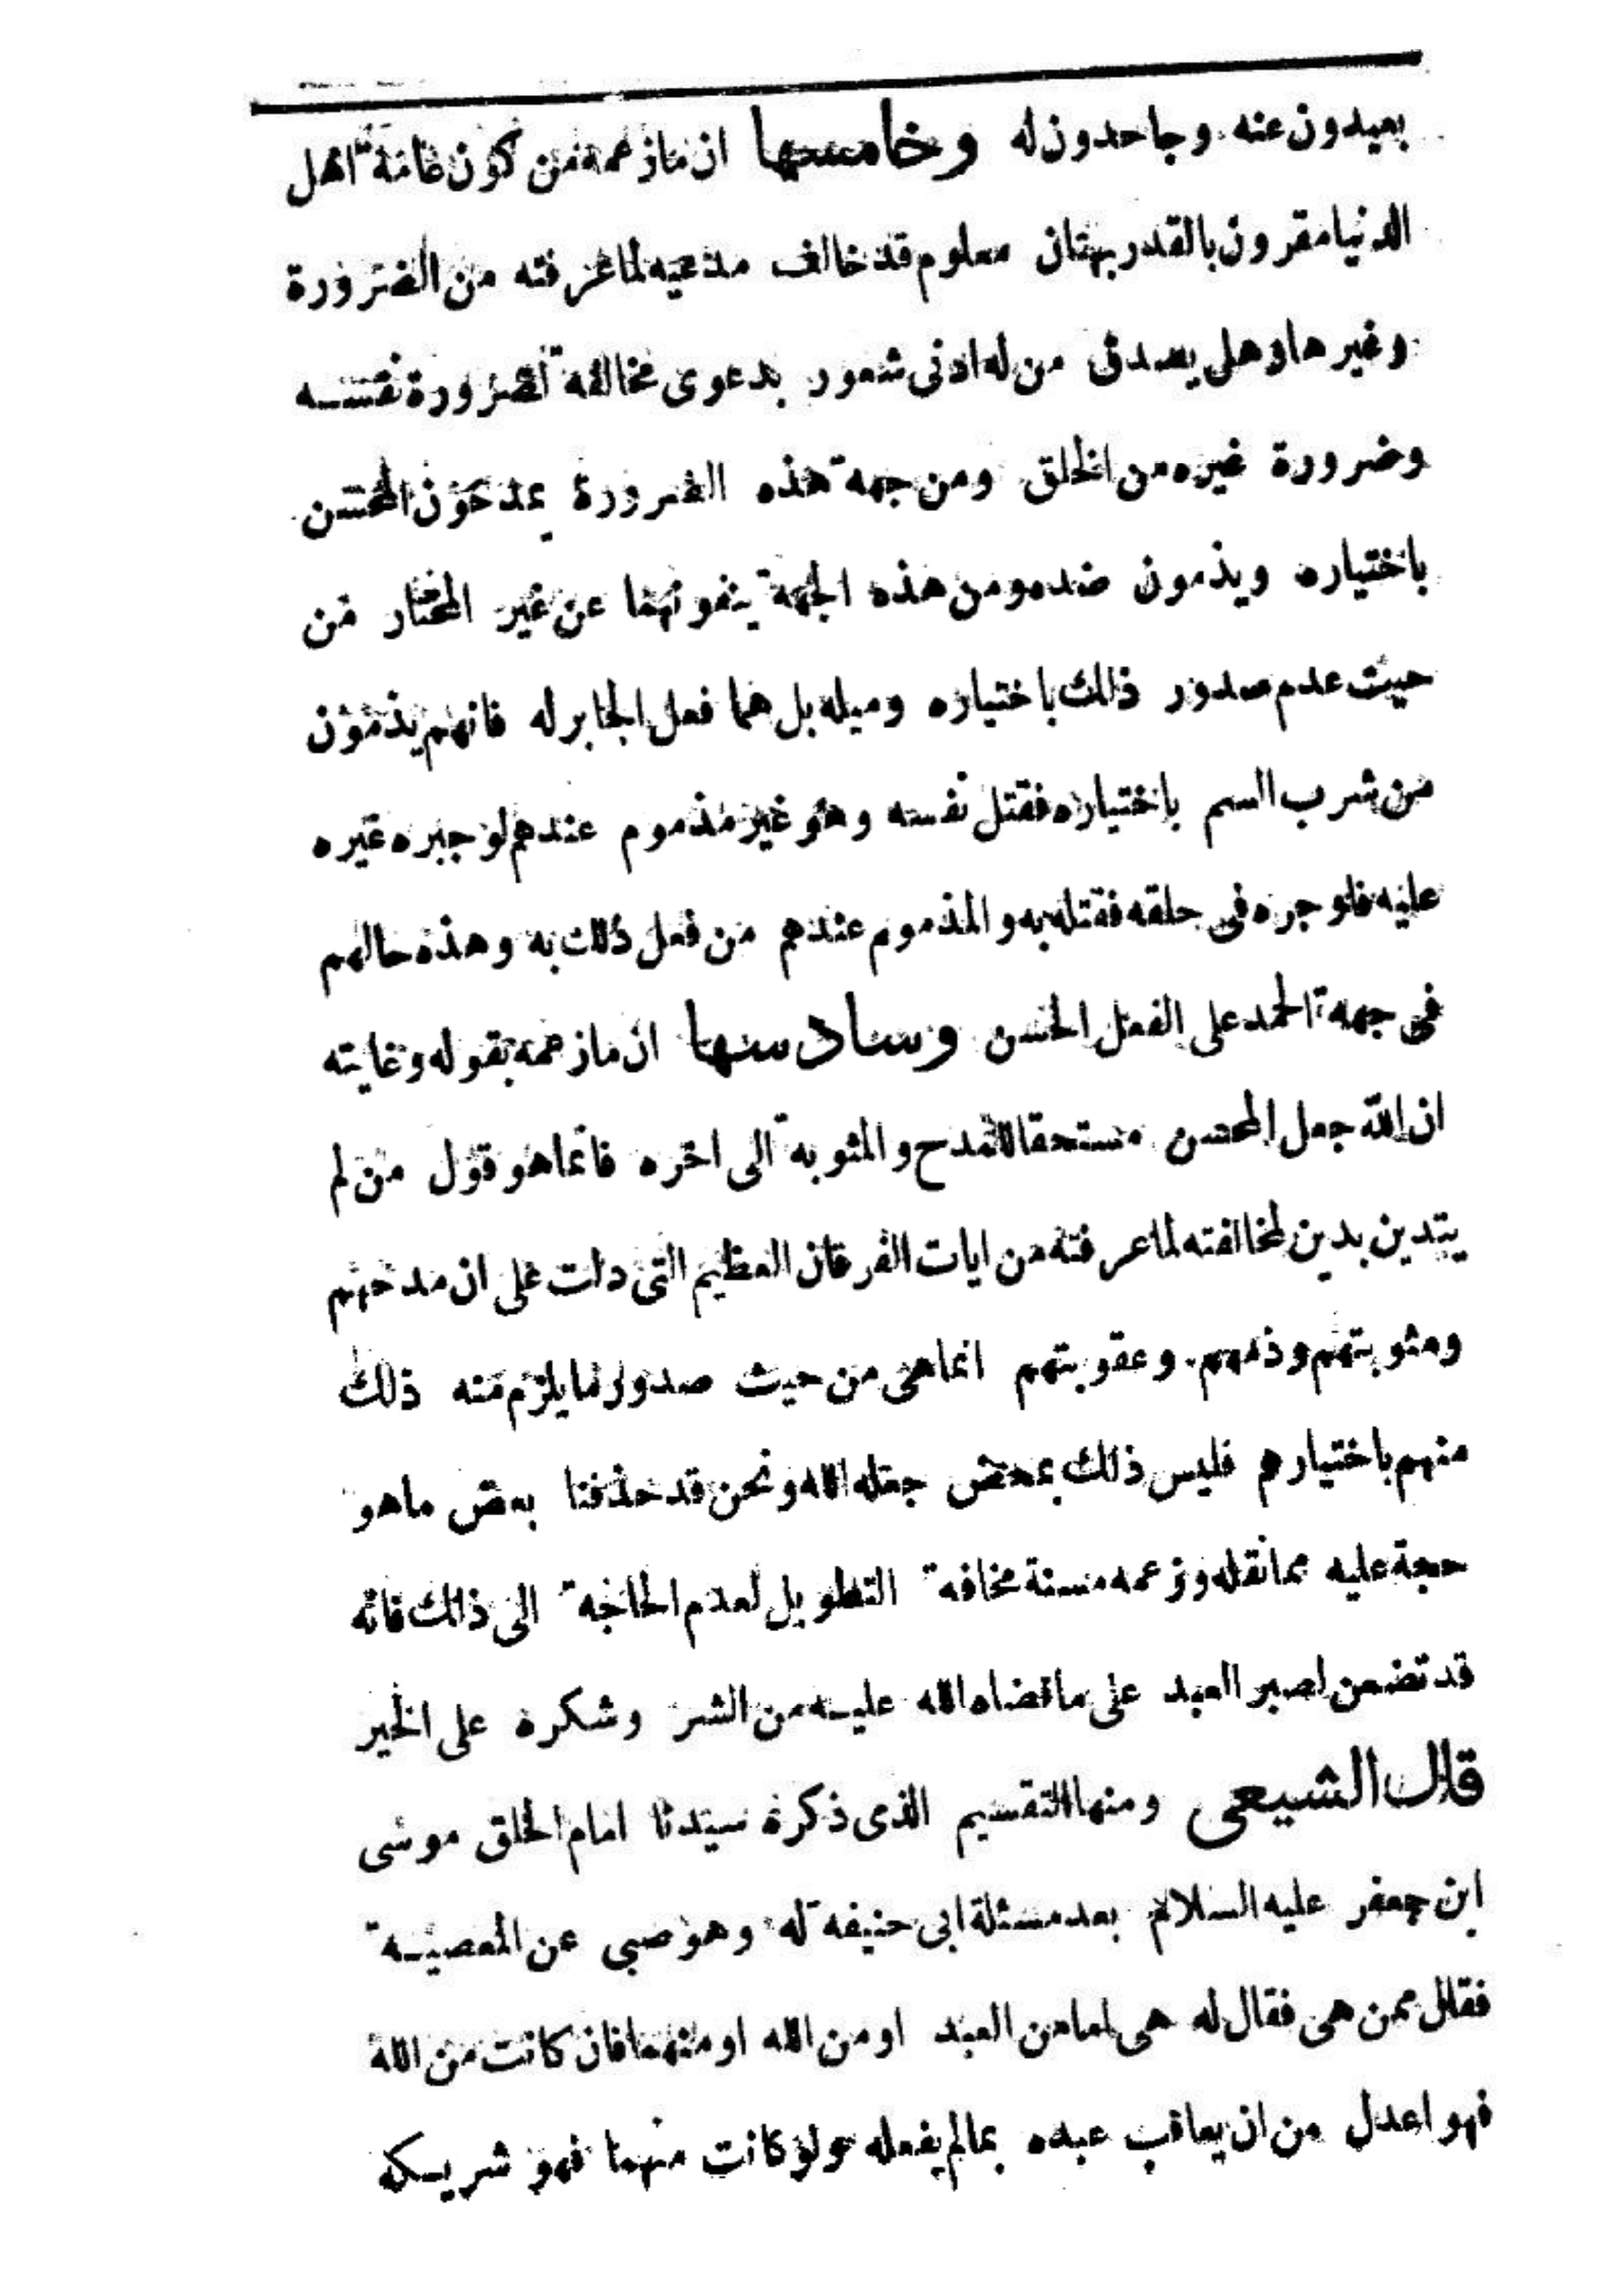 بعيدون عنه وجاحدون له وخامسها ان مازعمه من كون عامة اهل
الدنيا مقرون بالقدر بهتان معلوم قد خالف مدعيه لما عرفته من الضرورة
وغيرها وهل يصدق من له ادنى شعور بدعوى مخالفة لضرورة نفسه
وضرورة غيره من الخلق ومن جهة هذه الضرورة يمدحون المحسن
باختياره ويذمون ضده ومن هذه الجهة ينفونهما عن غير المختار من
حيث عدم صدور ذلك باختياره وميله بل هما فعل الجابر له فانهم يذمون
من شرب السم باختياره فقتل نفسه وهو غير مذموم عندهم لو جبره غيره
عليه فاوجره في حلقه فقتله به والمذموم عندهم من فعل ذلك به وهذه حالهم
في جهة الحمد على الفعل الحسن وسادسها ان مازعمه بقوله وغايته
ان الله جعل المحسن مستحقا للمدح والمثوبة الى اخره فانما هو قول من لم
يتدين بدين لمخالفته لما عرفته من ايات الفرقان العظيم التى دلت على ان مدحهم
ومثوبتهم وذمهم وعقوبتهم انما هى من حيث صدور ما يلزم منه ذلك
منهم باختيارهم فليس ذلك بمحض جعله الله ونحن قد حذفنا بعض ماهو
حجة عليه مما نقله وزعمه مسنة مخافة التطويل لعدم الحاجة الى ذلك فانه
قد تضمن لصبر العبد على ماقضاه الله عليه من الشر وشكره على الخير
قال الشيعى ومنها التقسيم الذى ذكره سيدنا امام الخلق موسى
ابن جعفر عليه السلام بعد مسئلة ابى حنيفة له وهو صبى عن المعصية
فقال ممن هى فقال له هى اما من العبد او من الله او منهما فان كانت من الله
فهو اعدل من ان يعاقب عبده بما لم يفعله ولو كانت منهما فهو شريكه